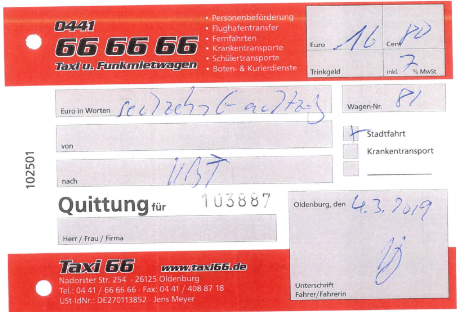 0441
66 66 66
Taxi u. Funkmietwagen
• Personenbeförderung
• Flughafentransfer
• Fernfahrten
• Krankentransporte
• Schülertransporte
• Boten- & Kurierdienste
Euro 16 Cent 80
Trinkgeld inkl. 7 % MwSt.
Euro in Worten sechzehn &
Wagen-Nr. 81
von
Stadtfahrt
nach
Krankentransport
102501
Quittung für 103887
Herr / Frau / Firma
Oldenburg, den 4.3.2019
Unterschrift
Fahrer/Fahrerin
Taxi 66 www.taxi66.de
Nadorster Str. 254 - 26125 Oldenburg
Tel.: 04 41 / 66 66 66 · Fax: 04 41 / 408 87 18
USt-IdNr.: DE270113852 · Jens Meyer